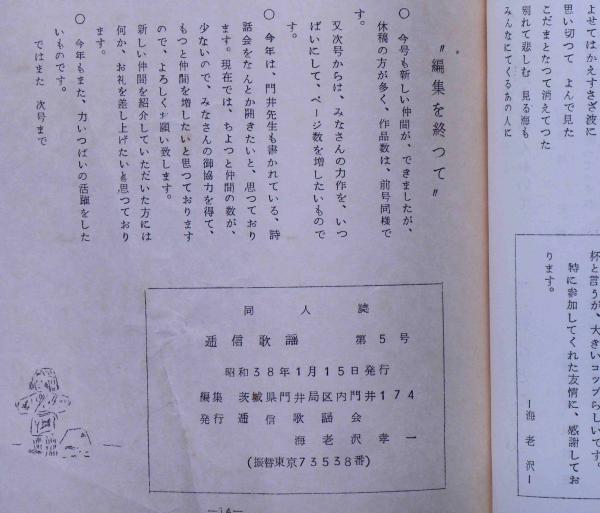 よせてはかえすさざ波に
思い切つて　よんで見た
こだまとなつて消えてつた
別れて悲しむ　見る海も
みんなにてくるあの人に
杯と言うが、大きいコップらしいです。
特に参加してくれた友情に、感謝してお
ります。
ー海老沢ー
〃編集を終つて〃
○　今号も新しい仲間が、できましたが、
休稿の方が多く、作品数は、前号同様で
す。
又次号からは、みなさんの力作を、いつ
ぱいにして、ページ数を増したいもので
す。
○　今年は、門井先生も書かれている、詩
話会をなんとか開きたいと、思つており
ます。現在では、ちよつと仲間の数が、
少ないので、みなさんの御協力を得て、
もつと仲間を増したいと思つております
ので、よろしくお願い致します。
新しい仲間を紹介していただいた方には
何か、お礼を差し上げたいと思つており
ます。
○　今年もまた、力いつぱいの活躍をした
いものです。
ではまた　次号まで
同人誌
逓信歌謡　第5号
昭和38年1月15日発行
編集　茨城県門井局区内門井174
発行　逓信歌謡会
海老沢孝一
(振替東京73538番)
―14―